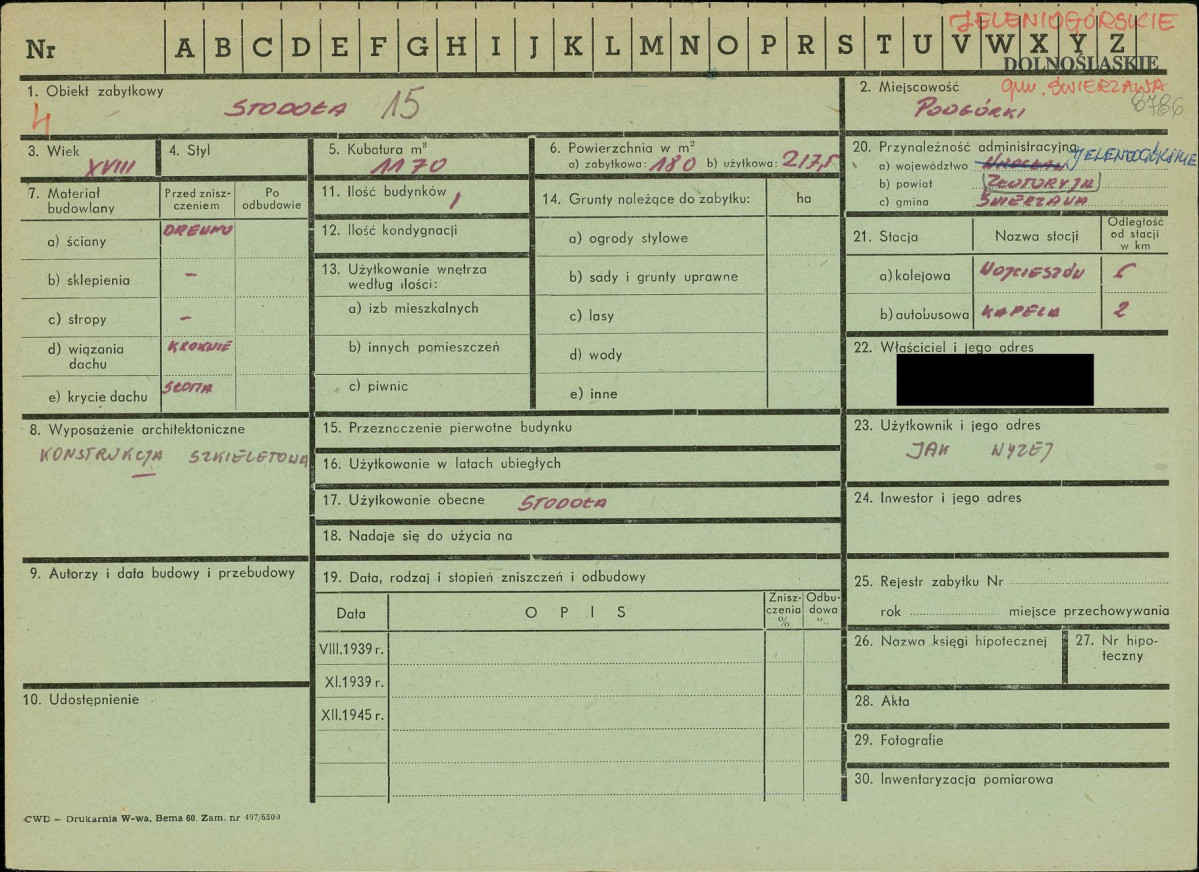 JELENIOGÓRSKIE
Nr A B C D E F G H I J K L M N O P R S T U V W X Y Z
DOLNOŚLĄSKIE
gm. ŚWIERZAWA
6786
1. Obiekt zabytkowy
4 STODOŁA 15
2. Miejscowość
PODGÓRKI
3. Wiek
XVIII
4. Styl
5. Kubatura m³
1170
6. Powierzchnia w m²
a) zabytkowa: 180 b) użytkowa: 217,5
20. Przynależność administracyjna
a) województwo WROCŁAW JELENIOGÓRSKIE
b) powiat ZŁOTORYJA
c) gmina ŚWIERZAWA
7. Materiał budowlany
Przed zniszczeniem
Po odbudowie
a) ściany DREWNO
b) sklepienia –
c) stropy –
d) wiązania dachu KROKWIE
e) krycie dachu SŁOMA
11. Ilość budynków 1
12. Ilość kondygnacji
13. Użytkowanie wnętrza według ilości:
a) izb mieszkalnych
b) innych pomieszczeń
c) piwnic
14. Grunty należące do zabytku: ha
a) ogrody stylowe
b) sady i grunty uprawne
c) lasy
d) wody
e) inne
21. Stacja Nazwa stacji Odległość od stacji w km
a) kolejowa WOJCIESZÓW 5
b) autobusowa KAPELA 2
22. Właściciel i jego adres
8. Wyposażenie architektoniczne
KONSTRUKCJA SZKIELETOWA
15. Przeznaczenie pierwotne budynku
16. Użytkowanie w latach ubiegłych
17. Użytkowanie obecne STODOŁA
18. Nadaje się do użycia na
23. Użytkownik i jego adres
JAK WYZEJ
24. Inwestor i jego adres
9. Autorzy i data budowy i przebudowy
19. Data, rodzaj i stopień zniszczeń i odbudowy
Data OPIS Zniszczenia % Odbudowa %
VIII.1939 r.
XI.1939 r.
XII.1945 r.
25. Rejestr zabytku Nr
rok miejsce przechowywania
26. Nazwa księgi hipotecznej
27. Nr hipoteczny
10. Udostępnienie
28. Akta
29. Fotografie
30. Inwentaryzacja pomiarowa
CWD – Drukarnia W-wa, Bema 60. Zam. nr 497/6500